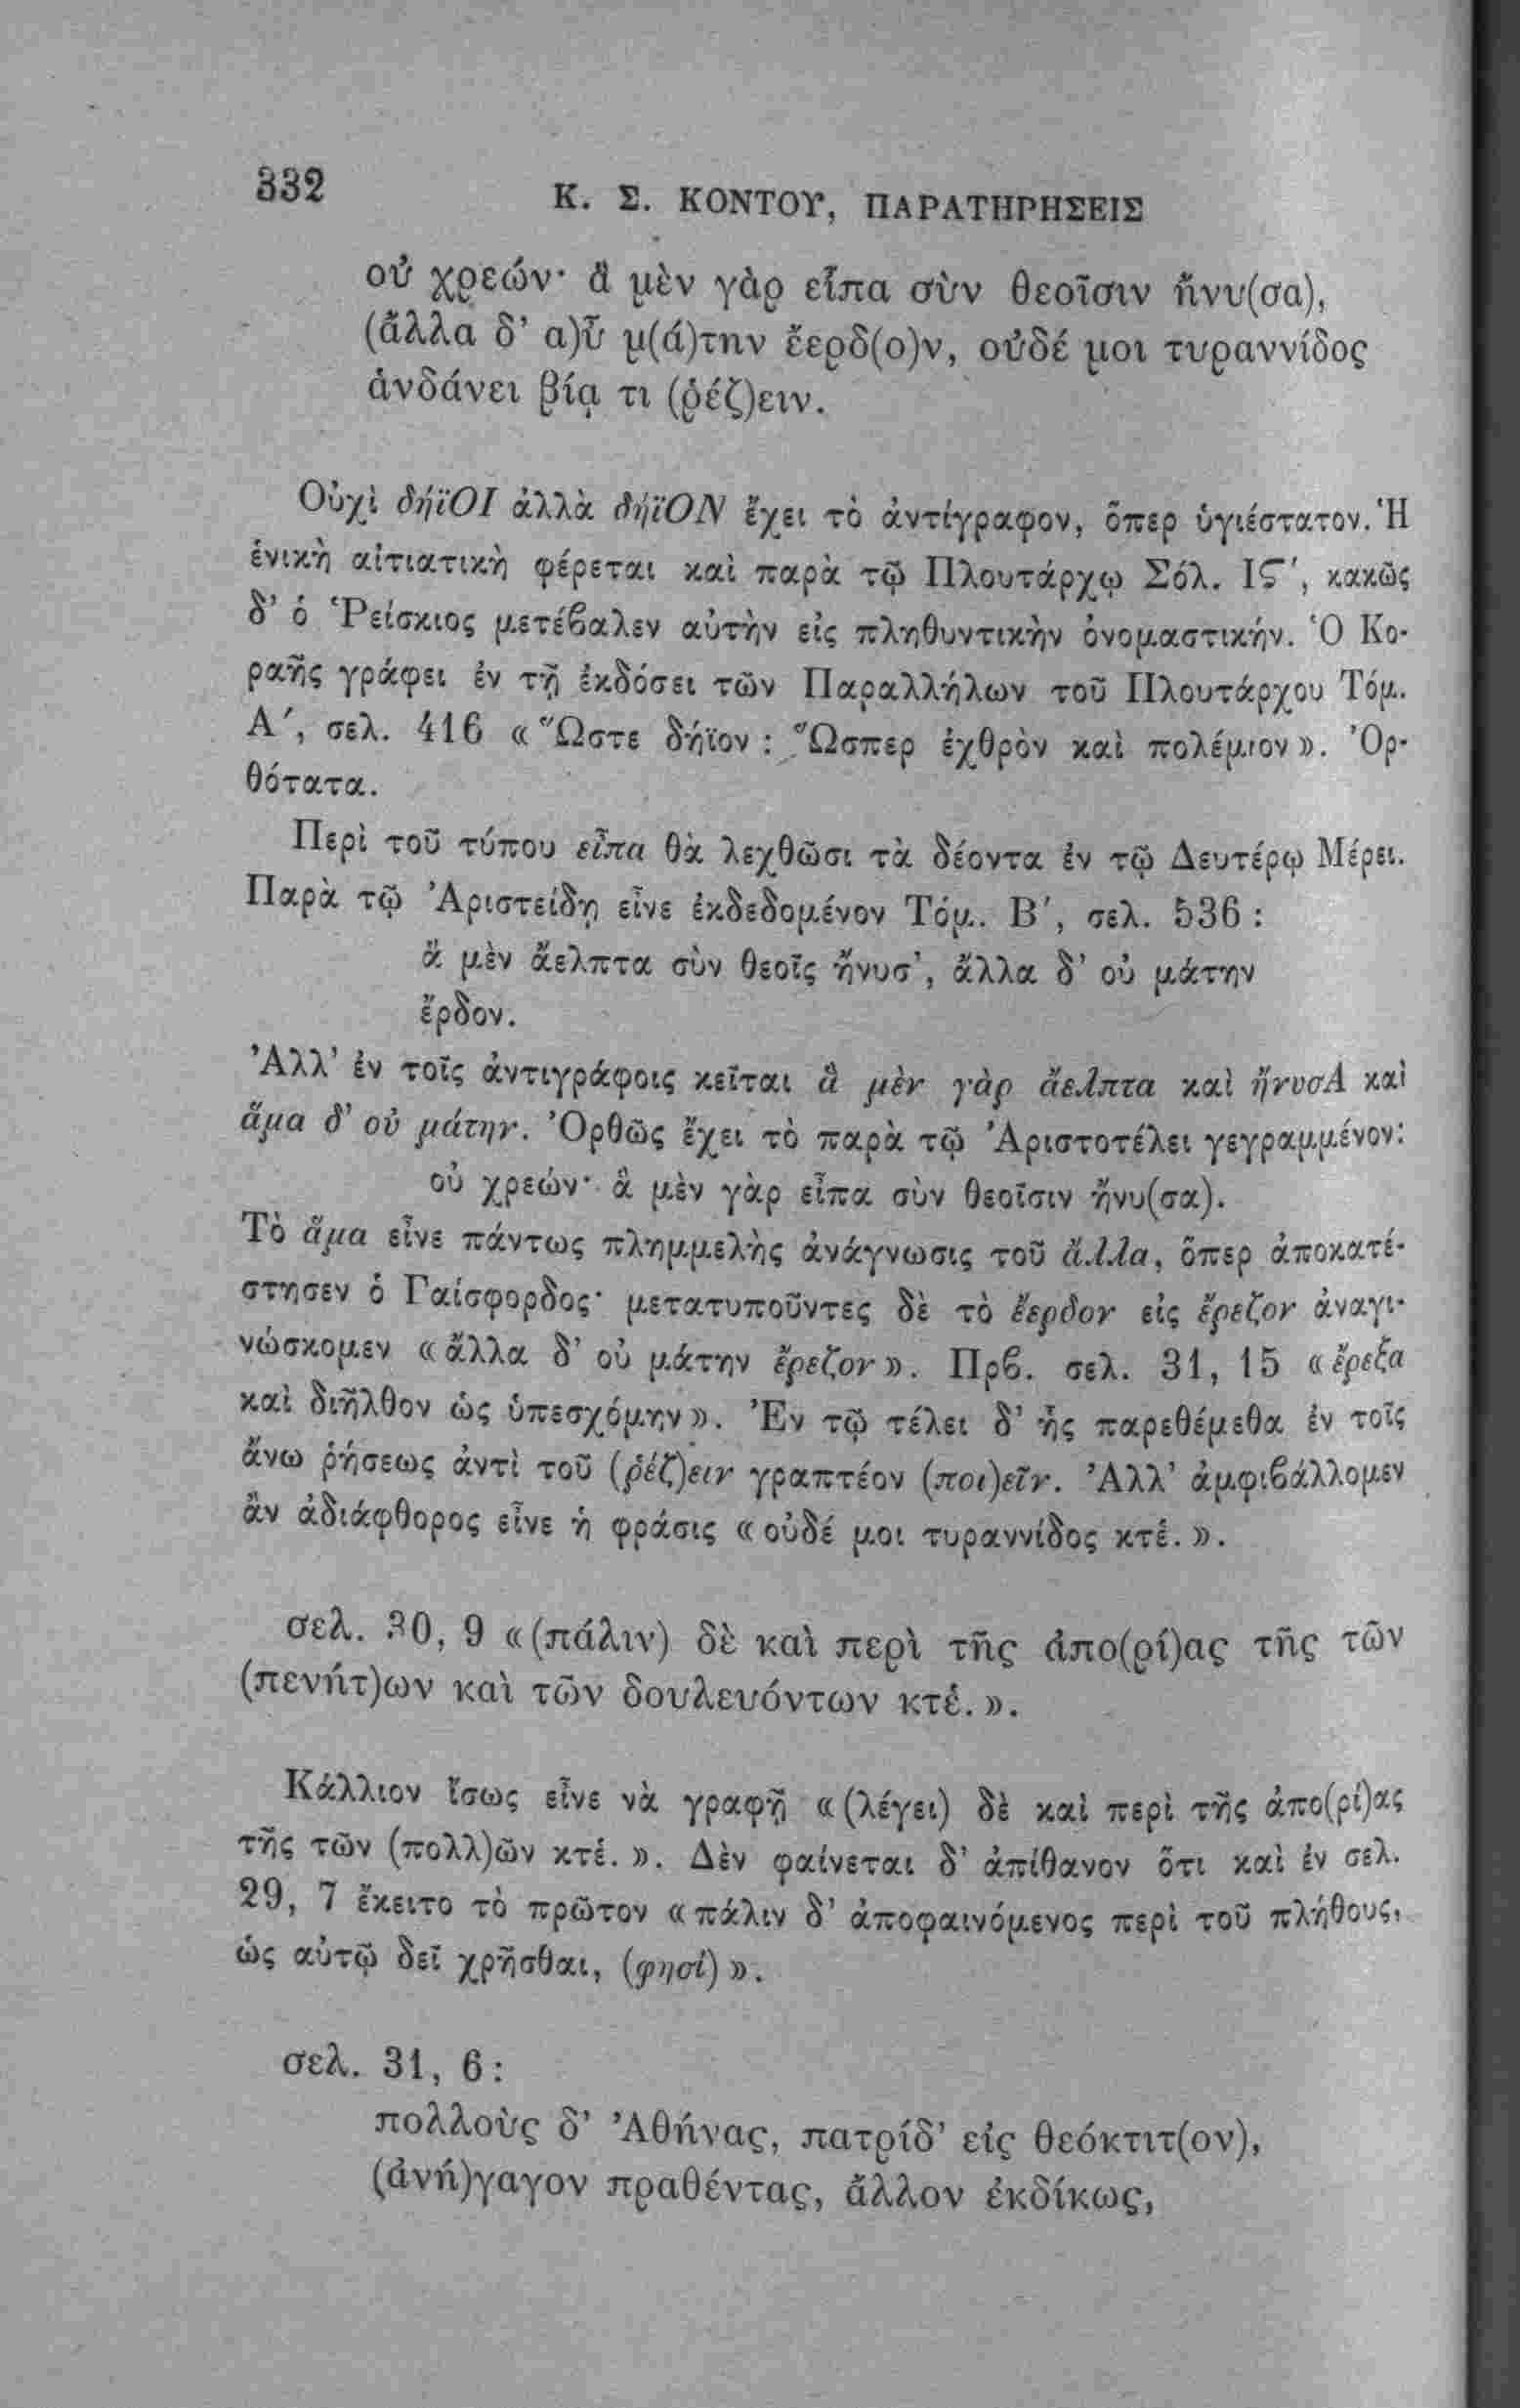 332
Κ. Σ. ΚΟΝΤΟΥ, ΠΑΡΑΤΗΡΗΣΕΙΣ
οὐ χρεών· ἃ μὲν γὰρ εἶπα σὺν θεοῖσιν ἤνυ(σα),
(ἄλλα δ' α)ὖ μ(ά)την ἔερδ(ο)ν, οὐδέ μοι τυραννίδος
ἁνδάνει βίᾳ τι (ῥέζ)ειν.
Οὐχὶ δήϊΟΙ ἀλλὰ δήϊΟΝ ἔχει τὸ ἀντίγραφον, ὅπερ ὑγιέστατον. Ἡ
ἑνικὴ αἰτιατικὴ φέρεται καὶ παρὰ τῷ Πλουτάρχῳ Σόλ. ΙϚ', κακῶς
δ' ὁ Ῥείσκιος μετέβαλεν αὐτὴν εἰς πληθυντικὴν ὀνομαστικήν. Ὁ Κο-
ραῆς γράφει ἐν τῇ ἐκδόσει τῶν Παραλλήλων τοῦ Πλουτάρχου Τόμ.
Α', σελ. 416 «Ὥστε δήϊον : Ὥσπερ ἐχθρὸν καὶ πολέμιον». Ὀρ-
θότατα.
Περὶ τοῦ τύπου εἶπα θὰ λεχθῶσι τὰ δέοντα ἐν τῷ Δευτέρῳ Μέρει.
Παρὰ τῷ Ἀριστείδῃ εἶνε ἐκδεδομένον Τόμ. Β', σελ. 536 :
ἃ μὲν ἄελπτα σὺν θεοῖς ἤνυσ', ἄλλα δ' οὐ μάτην
ἔρδον.
Ἀλλ' ἐν τοῖς ἀντιγράφοις κεῖται ἃ μὲν γὰρ ἄελπτα καὶ ἤνυσΑ καὶ
ἅμα δ' οὐ μάτην. Ὀρθῶς ἔχει τὸ παρὰ τῷ Ἀριστοτέλει γεγραμμένον:
οὐ χρεών· ἃ μὲν γὰρ εἶπα σὺν θεοῖσιν ἤνυ(σα).
Τὸ ἅμα εἶνε πάντως πλημμελὴς ἀνάγνωσις τοῦ ἄλλα, ὅπερ ἀποκατέ-
στησεν ὁ Γαίσφορδος· μετατυποῦντες δὲ τὸ ἔερδον εἰς ἔρεζον ἀναγι-
νώσκομεν «ἄλλα δ' οὐ μάτην ἔρεζον». Πρβ. σελ. 31, 15 «ἔρεξα
καὶ διῆλθον ὡς ὑπεσχόμην». Ἐν τῷ τέλει δ' ἧς παρεθέμεθα ἐν τοῖς
ἄνω ῥήσεως ἀντὶ τοῦ (ῥέζ)ειν γραπτέον (ποι)εῖν. Ἀλλ' ἀμφιβάλλομεν
ἂν ἀδιάφθορος εἶνε ἡ φράσις «οὐδέ μοι τυραννίδος κτἑ.».
σελ. 30, 9 «(πάλιν) δὲ καὶ περὶ τῆς ἀπο(ρί)ας τῆς τῶν
(πενήτ)ων καὶ τῶν δουλευόντων κτἑ.».
Κάλλιον ἴσως εἶνε νὰ γραφῇ «(λέγει) δὲ καὶ περὶ τῆς ἀπο(ρί)ας
τῆς τῶν (πολλ)ῶν κτἑ.». Δὲν φαίνεται δ' ἀπίθανον ὅτι καὶ ἐν σελ.
29, 7 ἔκειτο τὸ πρῶτον «πάλιν δ' ἀποφαινόμενος περὶ τοῦ πλήθους,
ὡς αὐτῷ δεῖ χρῆσθαι, (φησί)».
σελ. 31, 6:
πολλοὺς δ' Ἀθήνας, πατρίδ' εἰς θεόκτιτ(ον),
(ἀνή)γαγον πραθέντας, ἄλλον ἐκδίκως,